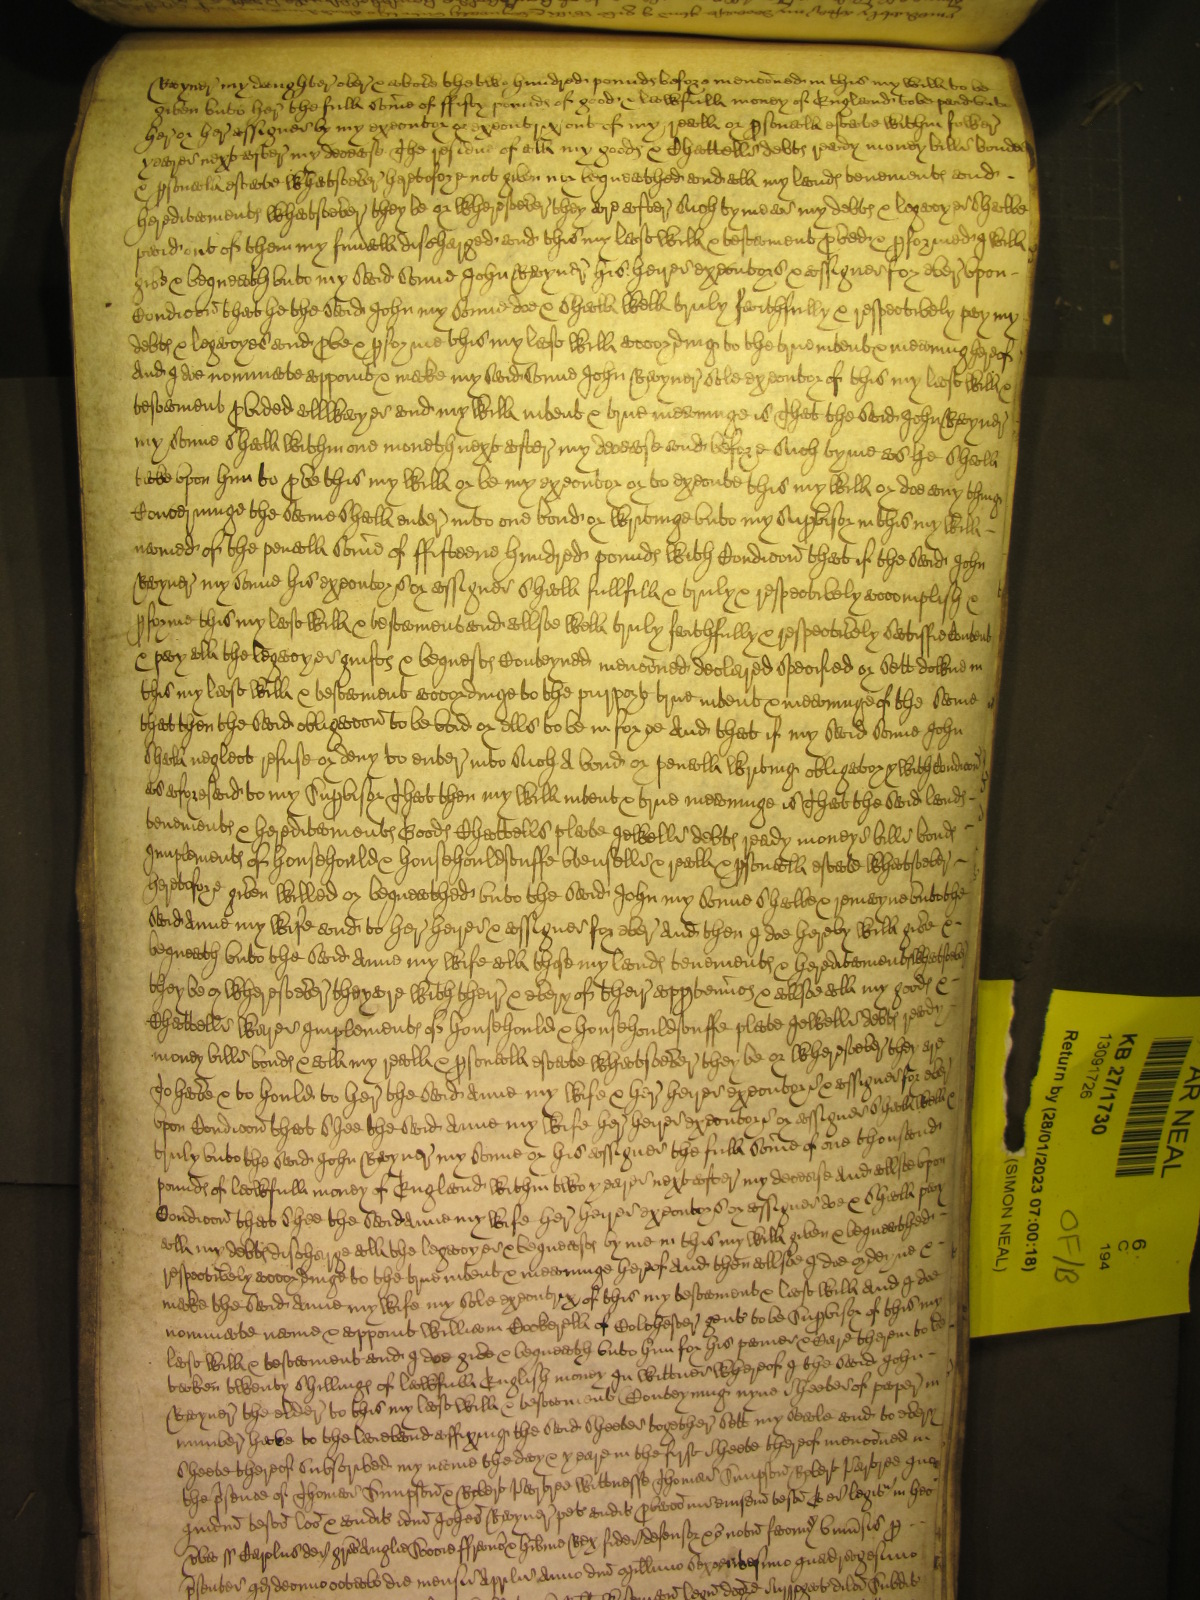 Rayner my daughter over & above the two hundred pounds before menconed in this my will to be
given unto her the full some of ffifty pounds of good & lawfull money of England to be paid unto
her or her assignes by my executor or executrix out of my reall or psonall estate within fower
yeares next after my decease The residue of all my goods & Chattells debts ready money bills bonds
& psonall estate whatsoever heretofore not given nor bequeathed and all my lands tenements and
hereditaments whatsoever they be or wheresoever they are after such tyme as my debts & legacyes shalbe
paid out of them my funerall discharged and this my last will & testament pved & pformed I will
give & bequeath unto my said sonne John Rayner his heires executors & assignes for ever upon
Condicon that he the said John my sonne doe & shall well truly faithfully & respectively pay my
debts & legacyes and pve & pforme this my last will according to the true intent & meaning hereof
And I doe nominate appoint & make my said sonne John Rayner sole executor of this my last will &
testament pvided allwayes and my will intent & true meaninge is That the said John Rayner
my sonne shall within one moneth next after my decease and before such tyme as he shall
take upon him to pve this my will or be my executor or to execute this my will or doe any thing
Concerninge the same shall enter into one bond or writinge unto my supvisor in this my will
named of the penall some of ffifteene hundred pounds with Condicon that if the said John
Rayner my sonne his executors or assignes shall fullfill & truly & respectively accomplish &
pforme this my last will & testament and allsoe well truly faithfully & respectively satisfie content
& pay all the legacyes guifts & bequests Conteyned menconed declared specified or sett downe in
this my last will & testament accordinge to the purport true intent & meaninge of the same
that then the said obligacon to be void or ells to be in force And that if my said sonne John
shall neglect refuse or deny to enter into such a bond or penall writing obligatory with Condicon
as aforesaid to my supvisor That then my will intent & true meaninge is That the said lands
tenements & hereditaments Goods Chattells plate Jewells debts ready moneys bills bonds
Implements of househould & househouldstuffe utensells & reall & psonall estate whatsoever
heretofore given willed or bequeathed unto the said John my sonne shalbe & remayne unto the
said Anne my wife and to her heires & assignes for ever And then I doe hereby will give &
bequeath unto the said Anne my wife all those my lands tenements & hereditaments whatsoever
they be or wheresoever they are with their & every of their apptennces & allsoe all my goods &
Chattells wares Implements of househould & househouldstuffe plate Jewells debts ready
money bills bonds & all my reall & psonall estate whatsoever they be or wheresoever they are
To have & to hould to her the said Anne my wife & her heires executors & assignes for ever
upon Condicon that shee the said Anne my wife her heires executors or assignes shall well &
truly unto the said John Rayner my sonne or his assignes the full some of one thousand
pounds of lawfull money of England within two yeares next after my decease And allsoe upon
Condicon that shee the said Anne my wife her heires executors or assignes doe & shall pay
all my debts discharge all the legacyes & bequests by me in this my will given & bequeathed
respectively accordinge to the true intent & meaninge hereof And then allsoe I doe ordeyne &
make the said Anne my wife my sole executrix of this my testament & last will And I doe
nominate name & appoint William Cockerell of Colchester gent to be supvisor of this my
last will & testament and I doe give & bequeath unto him for his paines & Care therein to be
taken twenty shillings of lawfull English money In wittnes whereof I the said John
Rayner the elder to this my last will & testament Conteyning nyne sheetes of paper in
number have to the labell and affixing the said sheetes together sett my seale and to every
sheete thereof subscribed my name the day & yeare in the first sheete thereof menconed in
the psence of Thomas Simpson & Robert Partree wittnesse Thomas Simpson Robert Partree
testm
Carolus dei gra Anglie Scocie ffrancie & Hibnie Rex fidei defensor
decimo octavo die mensis Aprilis Anno dni millimo sexcentesimo quadragesimo
AR NEAL
KB 27/1730
13091726
Return by (28/01/2023 07:00:18)
(SIMON NEAL)
6
C
194
OF/B